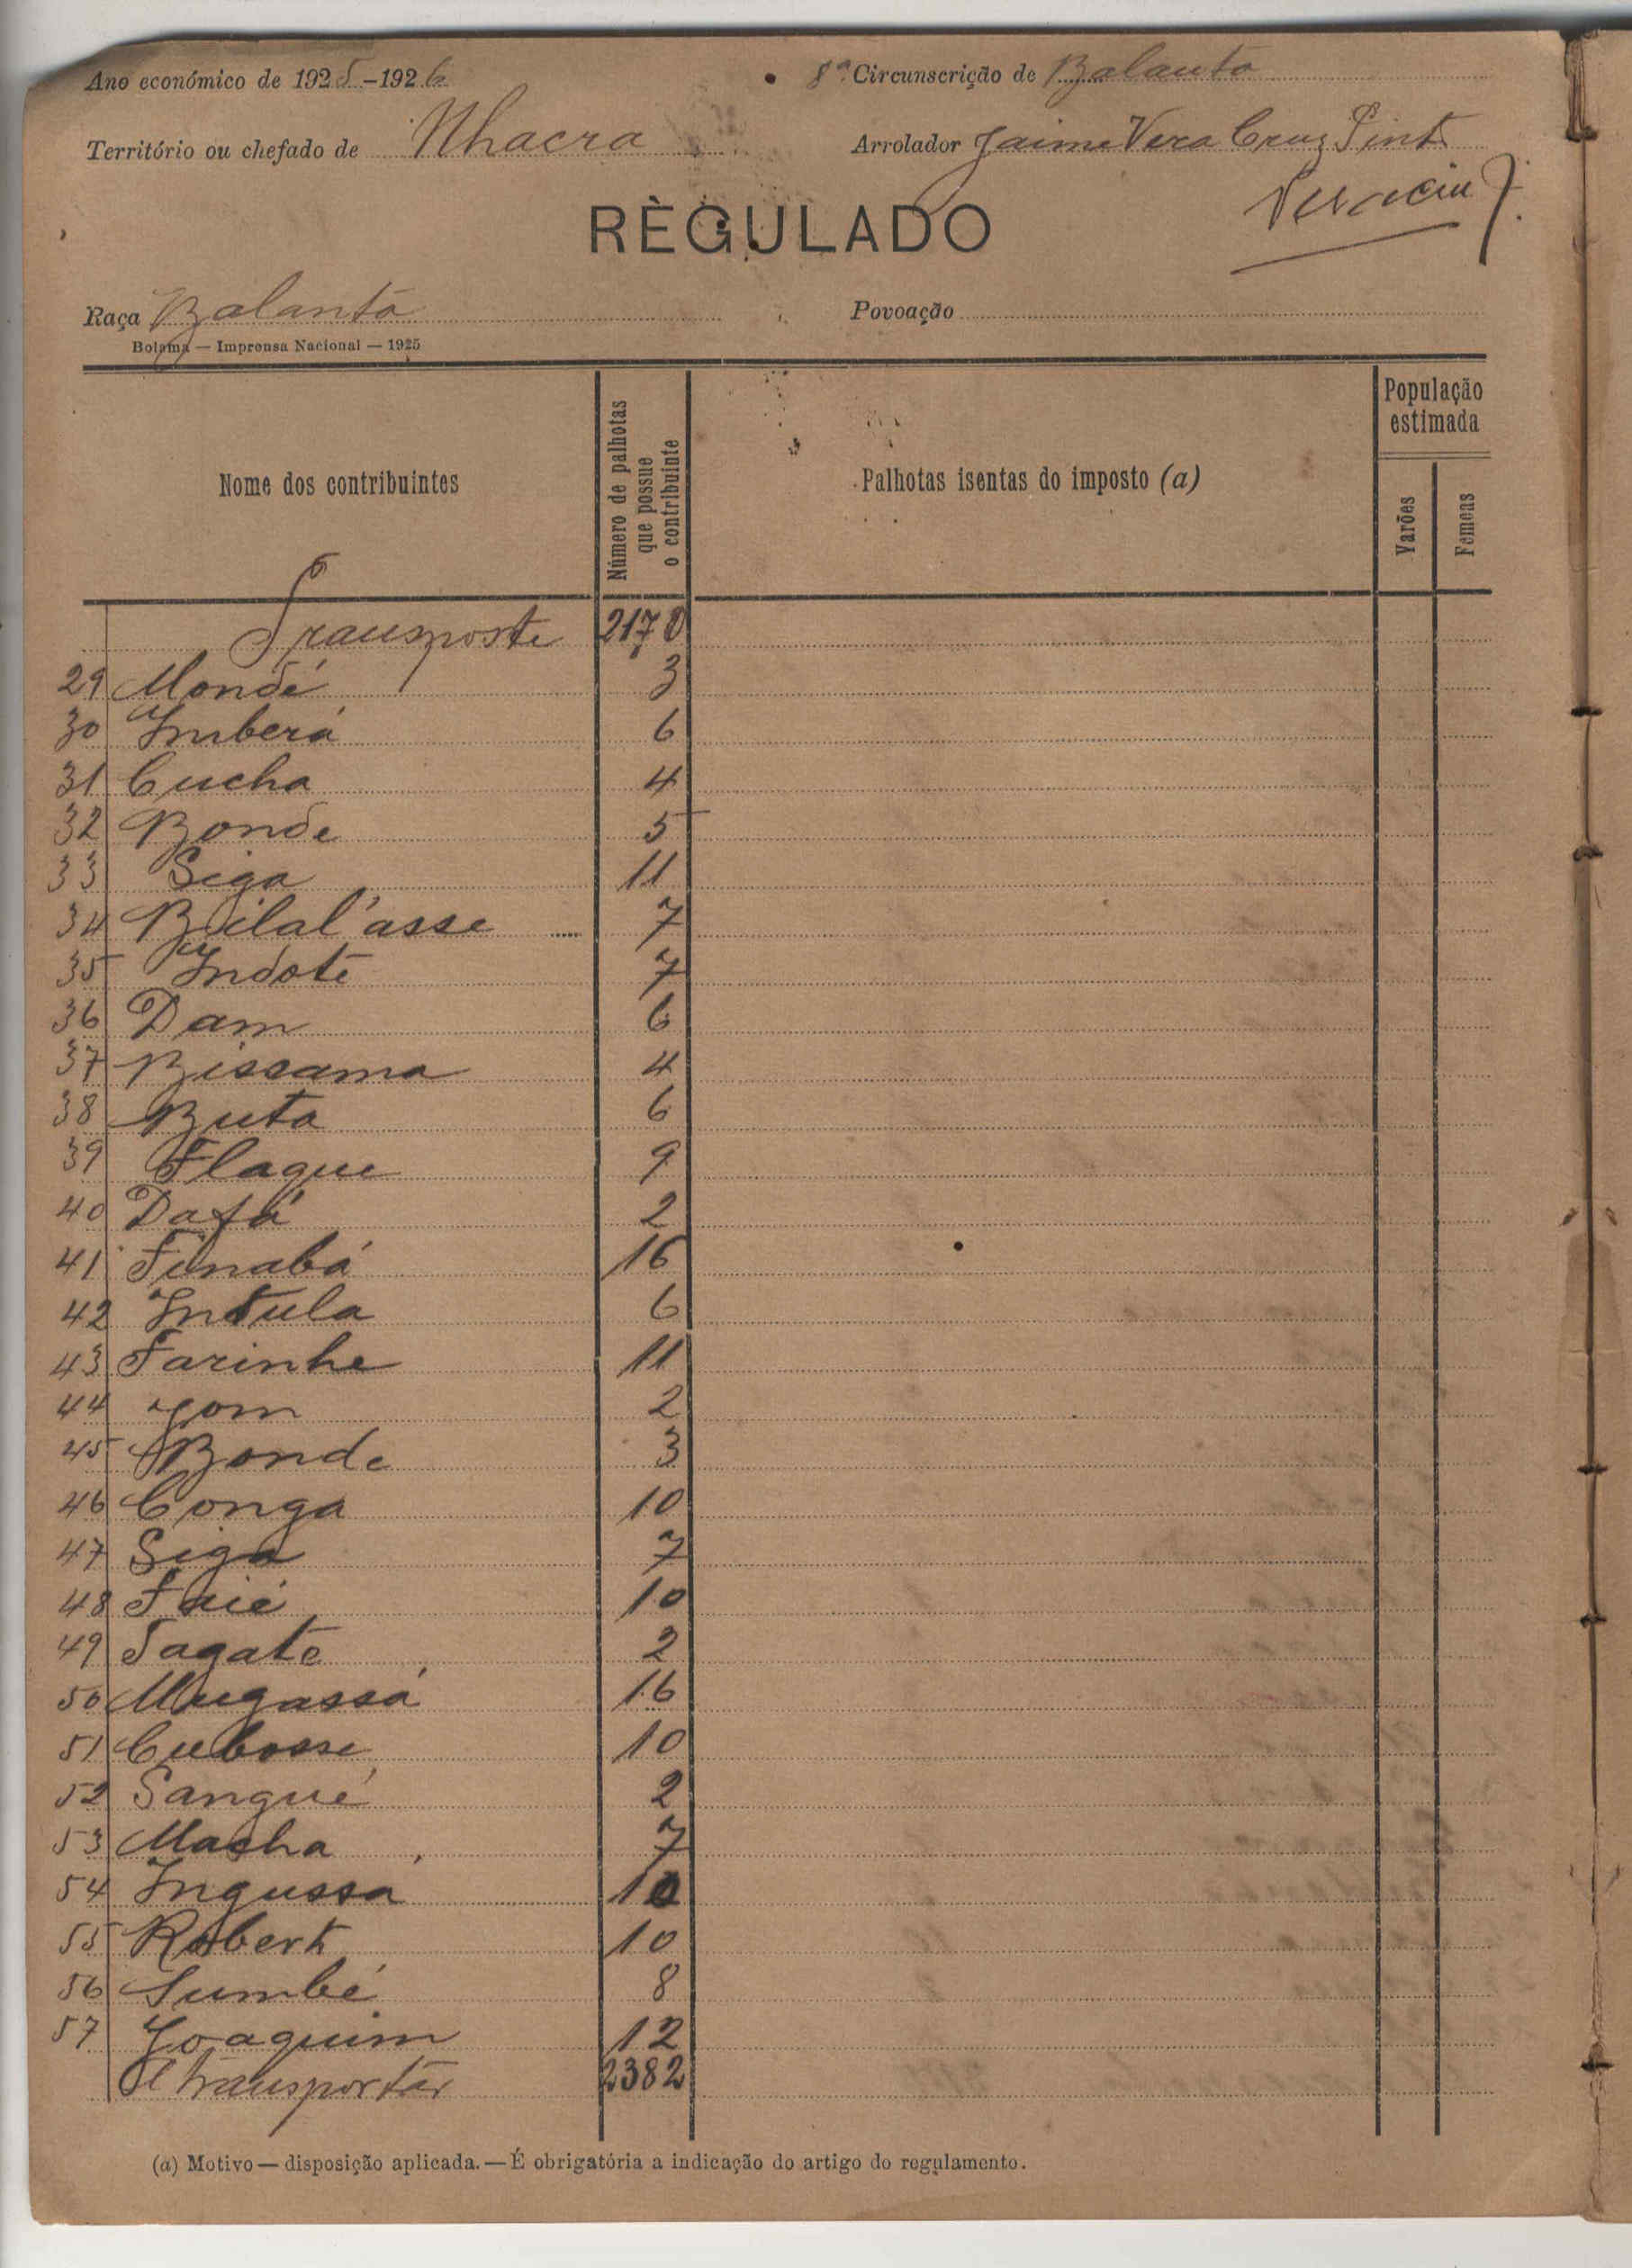 Ano económico de 1925-1926
8ª Circunscrição de Balanta
Território ou chefado de Nhacra
Arrolador Jaime Vera Cruz Pinto
RÈGULADO
Raça Balanta
Povoação
Bolama — Imprensa Nacional — 1925
Nome dos contribuintes
Número de palhotas que possue o contribuinte
Palhotas isentas do imposto (a)
População estimada
Varões
Femeas
Transporte 2170
29 Mondé 3
30 Imberá 6
31 Cucha 4
32 Bonde 5
33 Siga 11
34 Bilal'asse 7
35 Indote 7
36 Dam 6
37 Bissama 4
38 Buta 6
39 Flaque 9
40 Dafá 2
41 Finabá 16
42 Intula 6
43 Farinhe 11
44 Yom 2
45 Bonde 3
46 Conga 10
47 Siga 7
48 Faié 10
49 Tagate 2
50 Mugassá 16
51 Cubosse 10
52 Sangué 2
53 Macha 7
54 Ingussá 10
55 Robert 10
56 Sumbé 8
57 Joaquim 12
A transportar 2382
(a) Motivo — disposição aplicada. — É obrigatória a indicação do artigo do regulamento.